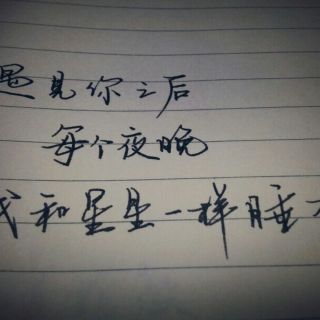 遇见你之后
每个夜晚
我和星星一样睡不